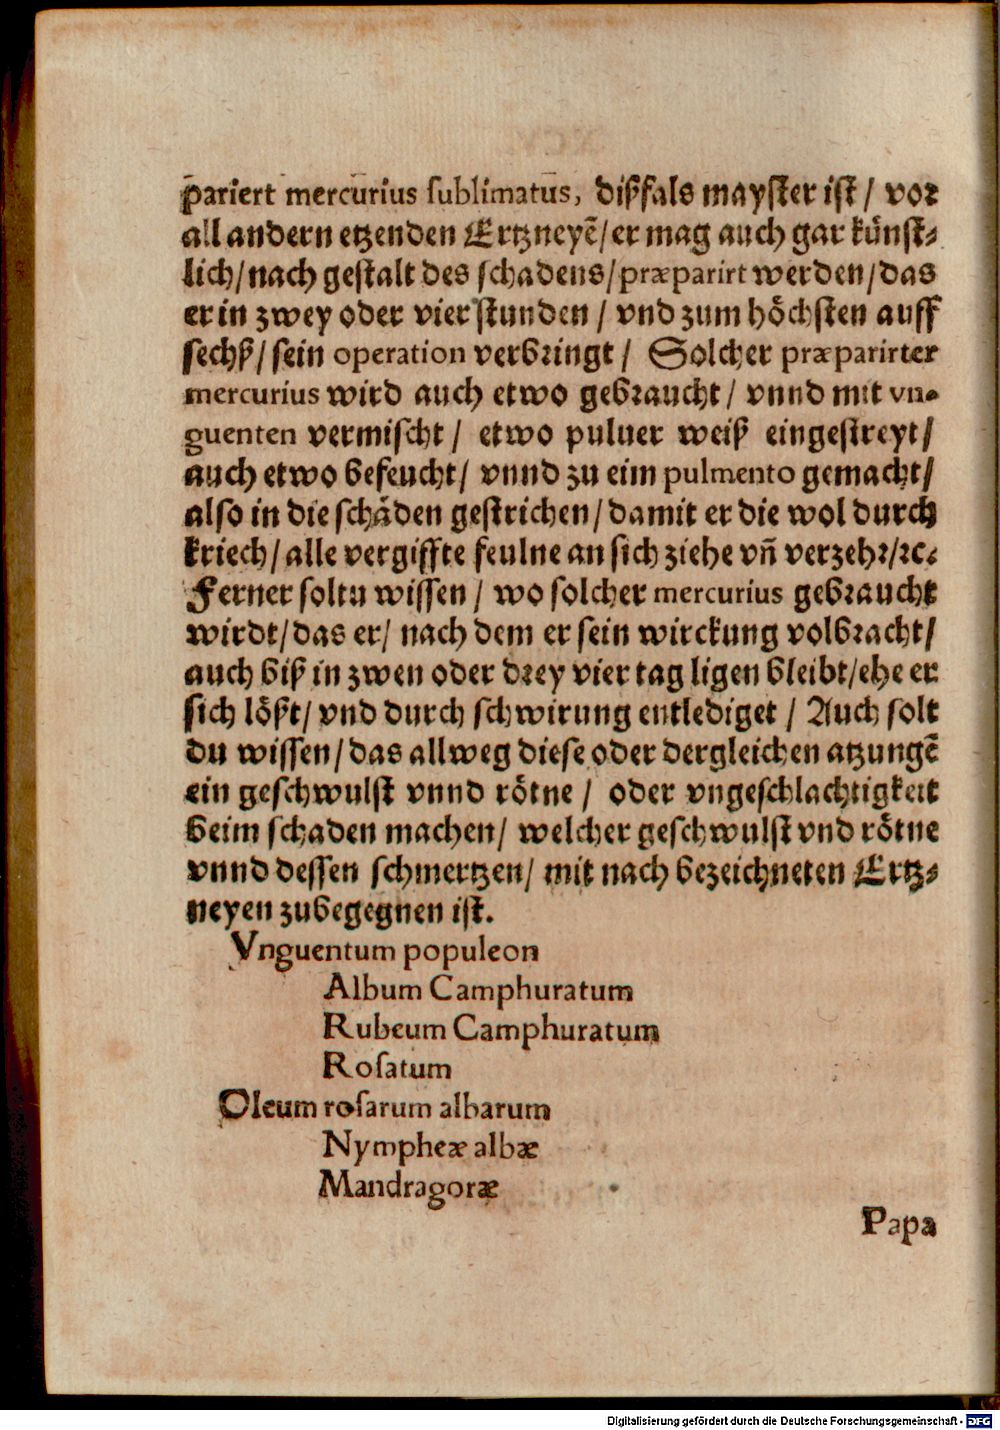 p̄ariert mercurius ſublimatus, diſzfals mayſter iſt / vor
all andern etzenden Ertzneyẽ/ er mag auch gar künſt⸗
lich/ nach geſtalt des ſchadens/ præparirt werden/ das
er in zwey oder vier ſtunden / vnd zum hoͤchſten auff
ſechß/ ſein operation verbringt / Solcher præparirter
mercurius wird auch etwo gebraucht / vnnd mit vn⸗
guenten vermiſcht / etwo puluer weiß eingeſtreyt/
auch etwo befeucht/ vnnd zu eim pulmento gemacht/
alſo in die ſchaͤden geſtrichen/ damit er die wol durch
kriech/ alle vergiffte feulne an ſich ziehe vñ verzehr/ ꝛc.
Ferner ſoltu wiſſen / wo ſolcher mercurius gebraucht
wirdt/ das er/ nach dem er ſein wirckung volbracht/
auch biß in zwen oder drey vier tag ligen bleibt/ ehe er
ſich loͤßt/ vnd durch ſchwirung entlediget / Auch ſolt
du wiſſen/ das allweg dieſe oder dergleichen atzungẽ
ein geſchwulſt vnnd roͤtne / oder vngeſchlachtigkeit
beim ſchaden machen/ welcher geſchwulſt vnd roͤtne
vnnd deſſen ſchmertzen/ mit nach bezeichneten Ertz⸗
neyen zubegegnen iſt.
Vnguentum populeon
Album Camphuratum
Rubeum Camphuratum
Roſatum
Oleum roſarum albarum
Nympheæ albæ
Mandragoræ
Papa
Digitalisierung gefördert durch die Deutsche Forschungsgemeinschaft - DFG